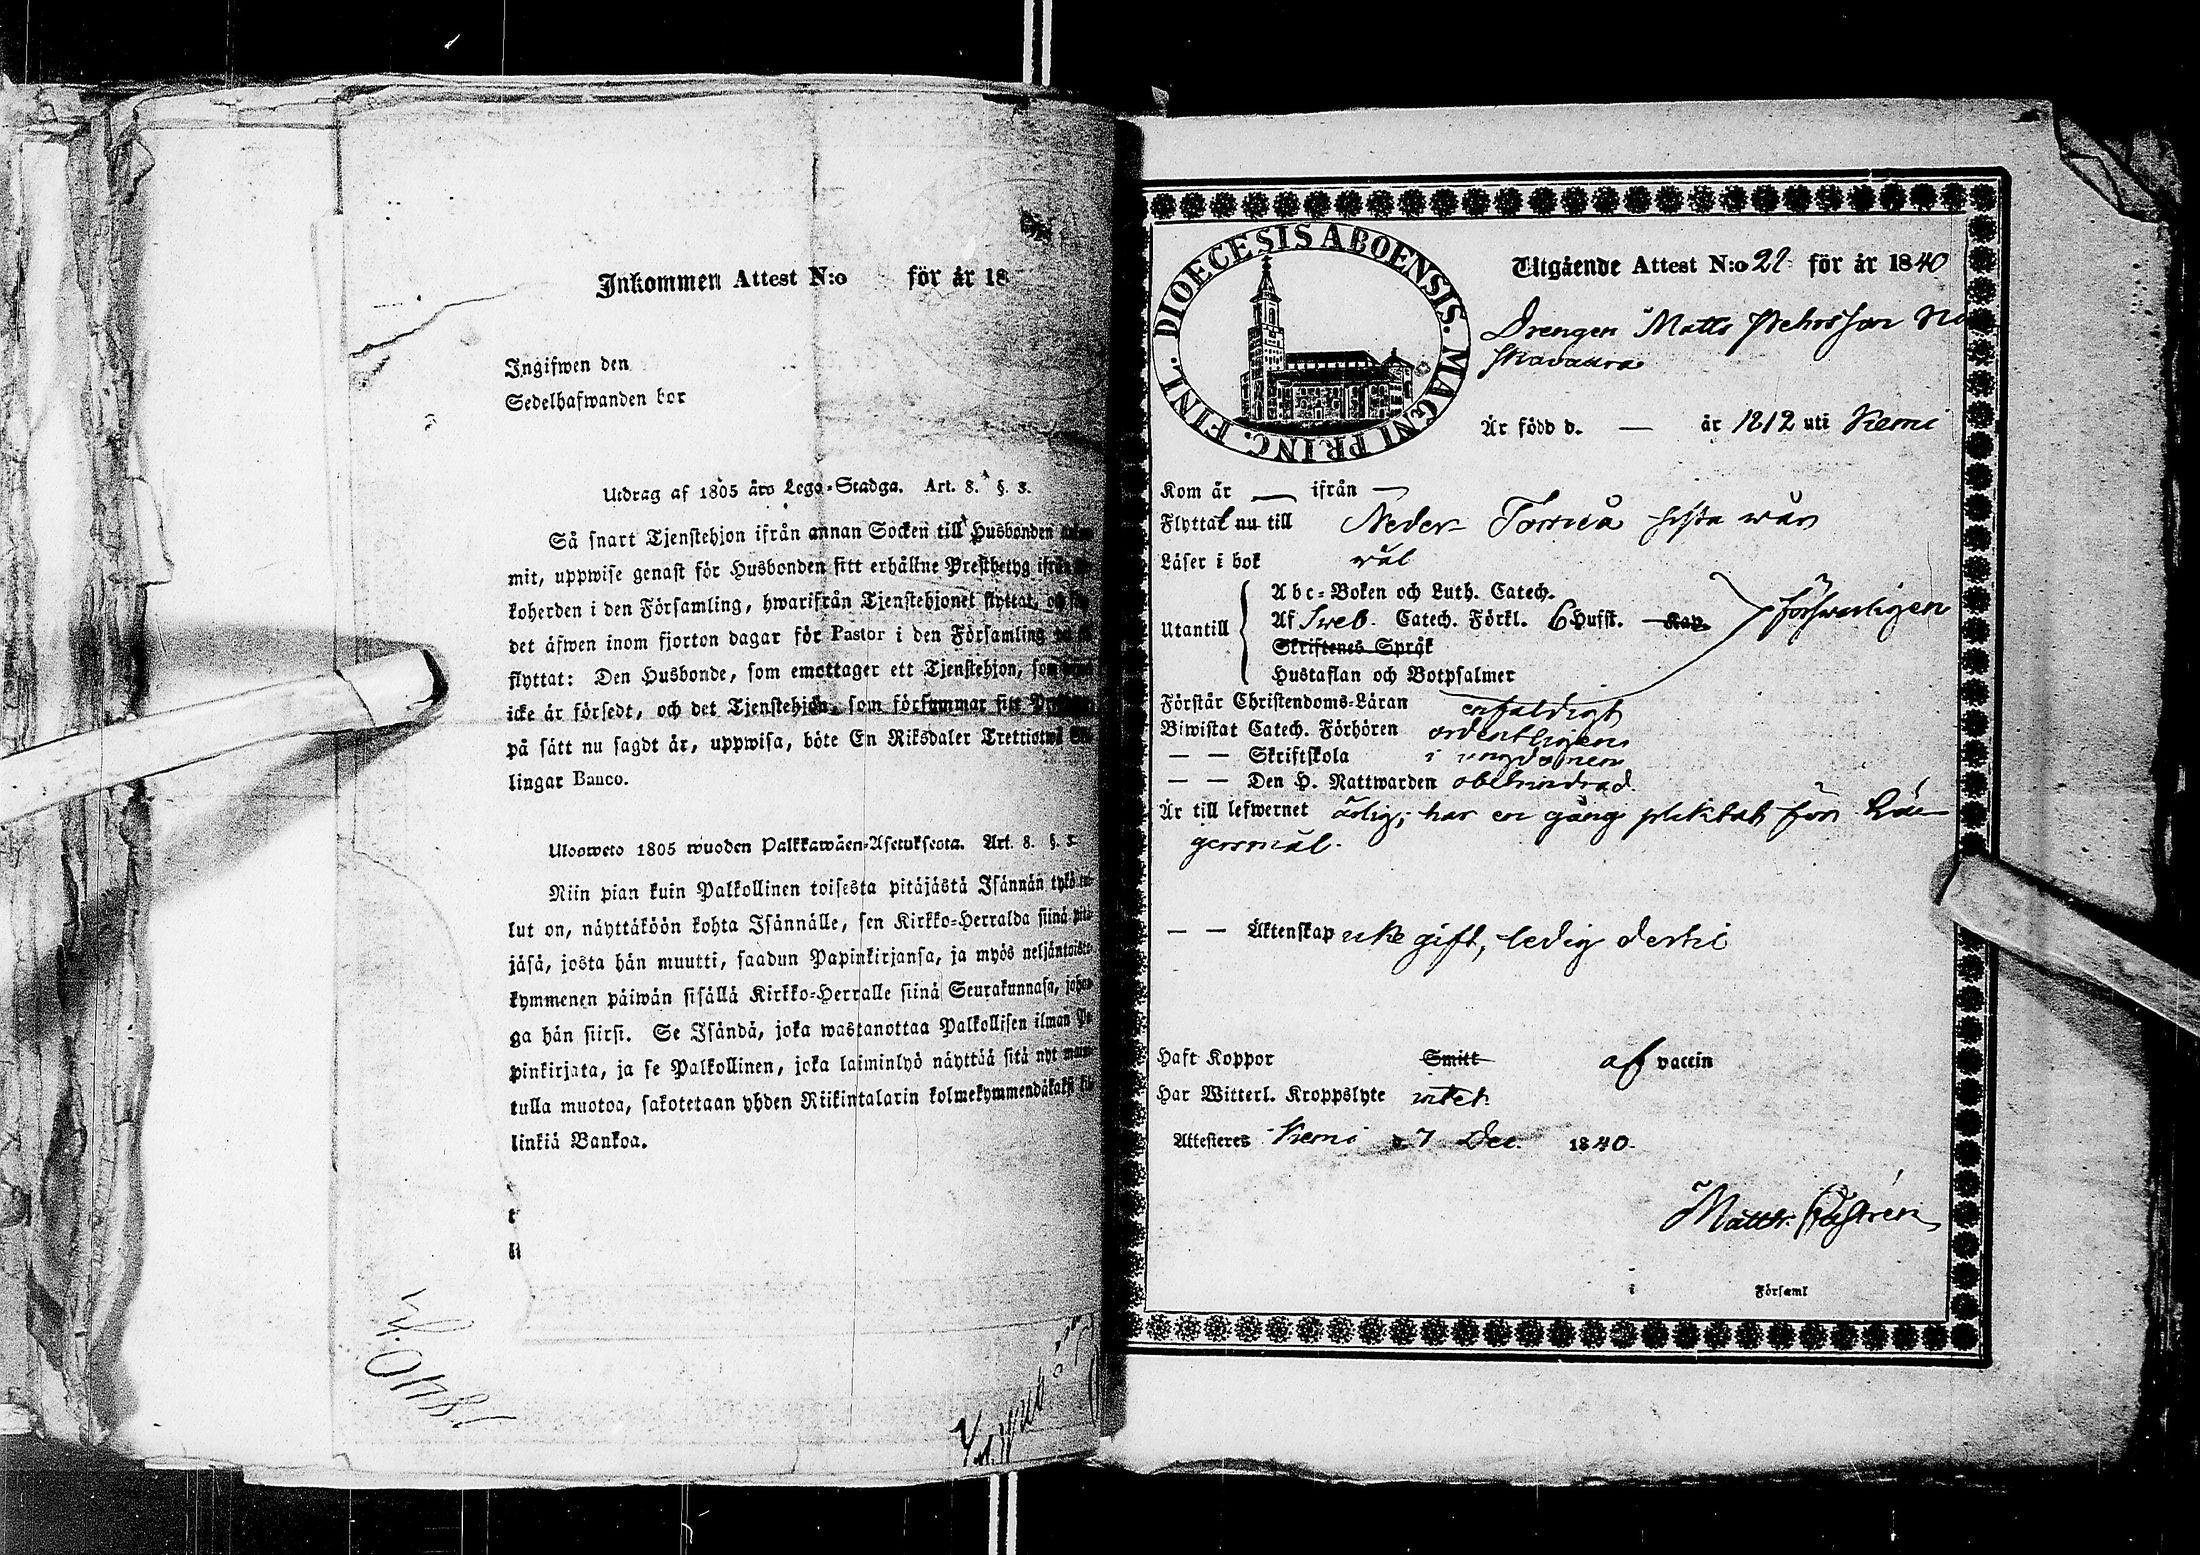 Inkommen Attest N:o för år 18
Ingifwen den
Sedelhafwanden bor
Utdrag af 1805 års Lego-Stadga. Art. 8. §. 3.
Så snart Tjenstehjon ifrån annan Socken till Husbonden
mit, uppwise genast för Husbonden sitt erhållne Presthetyg ifrån
koherden i den Församling, hwarifrån Tjenstehjonet flyttat,
det äfwen inom fjorton dagar för Pastor i den Församling
flyttat: Den Husbonde, som emottager ett Tjenstehjon, som
icke är försedt, och det Tjenstehjon, som försummar sitt
på sätt nu sagdt är, uppwisa, böte En Riksdaler Trettiotwå
lingar Banco.
Uloosweto 1805 wuoden Palkkawäen-Asetuksesta. Art. 8. §. 3.
Niin pian kuin Palkollinen toisesta pitäjästä Isännän tykö
lut on, näyttäköön kohta Isännälle, sen Kirkko-Herralda siinä pitä-
jäsä, josta hän muutti, saadun Papinkirjansa, ja myös neljäntoista-
kymmenen päiwän sisällä Kirkko-Herralle siinä Seurakunnasa, johon-
ga hän siirsi. Se Isändä, joka wastanottaa Palkollisen ilman Pa-
pinkirjata, ja se Palkollinen, joka laiminlyö näyttää sitä nyt
tulla muotoa, sakotetaan yhden Riikintalarin kolmekymmendäkaksi
linkiä Bankoa.
1840
DIOECESIS ABOENSIS. MAGNI PRINC. FINL.
Utgående Attest N:o 22 för år 1840
Drengen Matts Pehrsson
Är född d. — år 1812 uti Kemi
Kom år — ifrån —
Flyttat nu till Neder Torneå sista wår
Läser i bok wäl
Utantill
Abc-Boken och Luth. Catech.
Af Sweb. Catech. Förkl. 6 Hufst. Kap.
Skriftenes Språk
Hustaflan och Botpsalmer
försvarligen
Förstår Christendoms-Läran enfaldigt
Biwistat Catech. Förhören ordentligen
— — Skriftskola i ungdomen
— — Den H. Nattwarden obehindrad.
Är till lefwernet ärlig; har en gång pliktat för Lä-
gersmål.
— — Äktenskap icke gift, ledig dertil
Haft Koppor Smitt af vaccin
Har Witterl. Kroppslyte intet
Attesteres Kemi d 7 Dec. 1840.
Matth. Castrén
i Församl